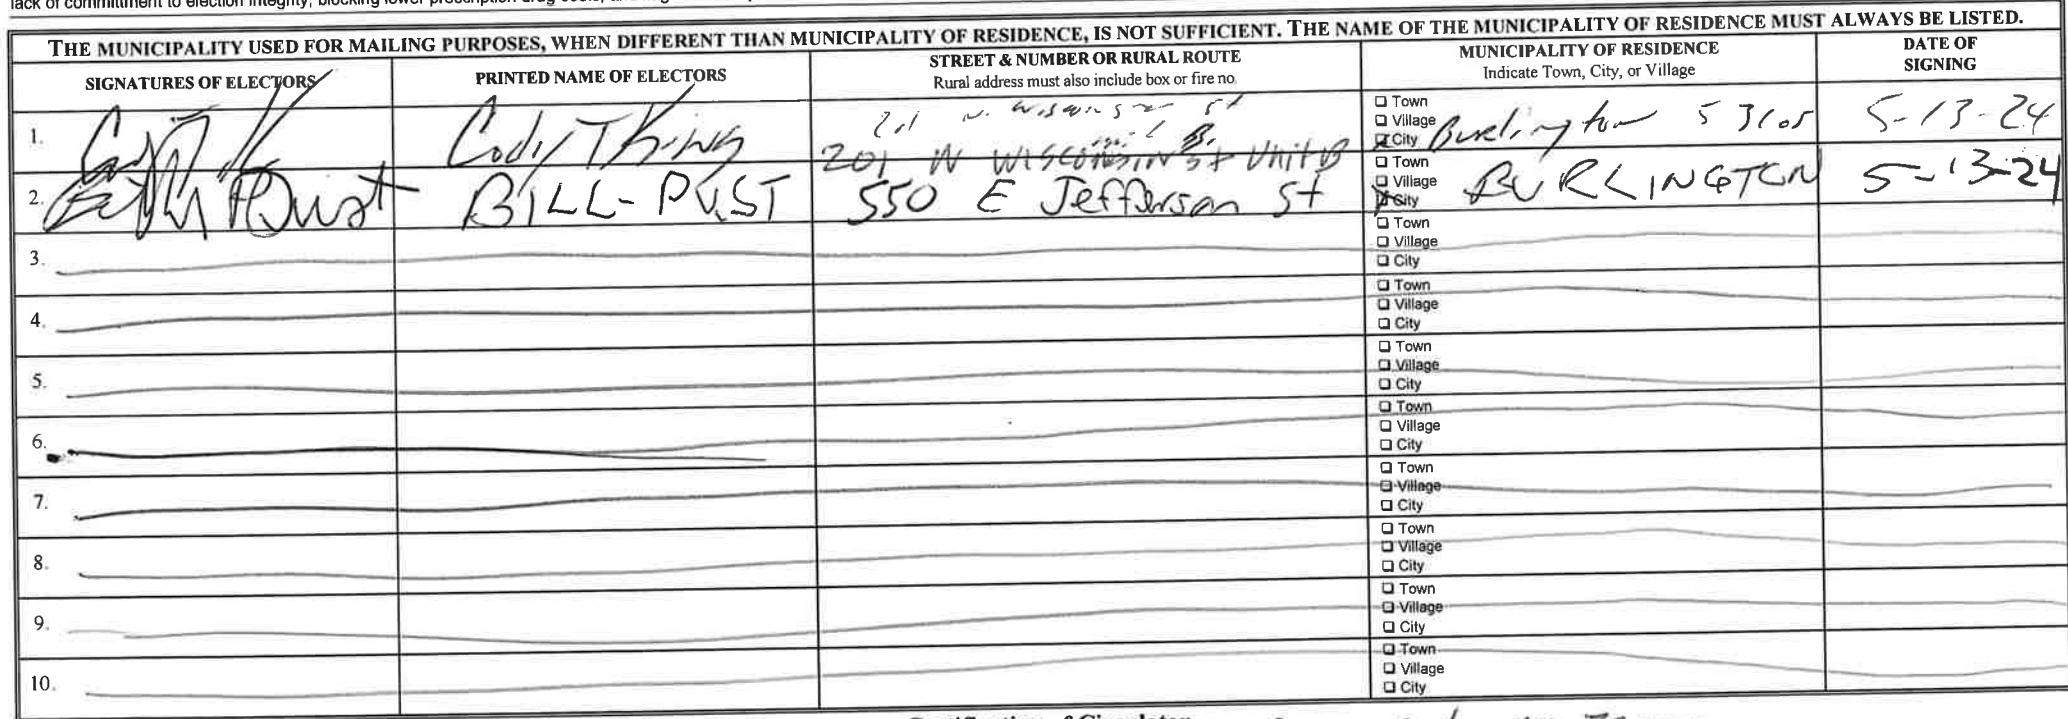 lack of committment to election integrity, blocking lower prescription drug costs, and
THE MUNICIPALITY USED FOR MAILING PURPOSES, WHEN DIFFERENT THAN MUNICIPALITY OF RESIDENCE, IS NOT SUFFICIENT. THE NAME OF THE MUNICIPALITY OF RESIDENCE MUST ALWAYS BE LISTED.
SIGNATURES OF ELECTORS
PRINTED NAME OF ELECTORS
STREET & NUMBER OR RURAL ROUTE
Rural address must also include box or fire no.
MUNICIPALITY OF RESIDENCE
Indicate Town, City, or Village
DATE OF
SIGNING
1.
Cody T King
201 N. Wisconsin St
201 N WISCONSIN St Unit B
Town
Village
City
Burlington 53105
5-13-24
2.
BILL-PUST
550 E Jefferson St
Town
Village
City
BURLINGTON
5-13-24
3.
Town
Village
City
4.
Town
Village
City
5.
Town
Village
City
6.
Town
Village
City
7.
Town
Village
City
8.
Town
Village
City
9.
Town
Village
City
10.
Town
Village
City